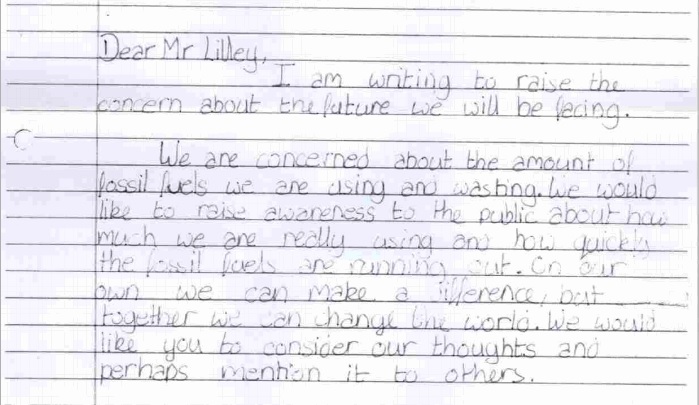 Dear Mr Lilley,
I am writing to raise the
concern about the future we will be facing.
We are concerned about the amount of
fossil fuels we are using and wasting. We would
like to raise awareness to the public about how
much we are really using and how quickly
the fossil fuels are running out. On our
own we can make a difference, but
together we can change the world. We would
like you to consider our thoughts and
perhaps mention it to others.